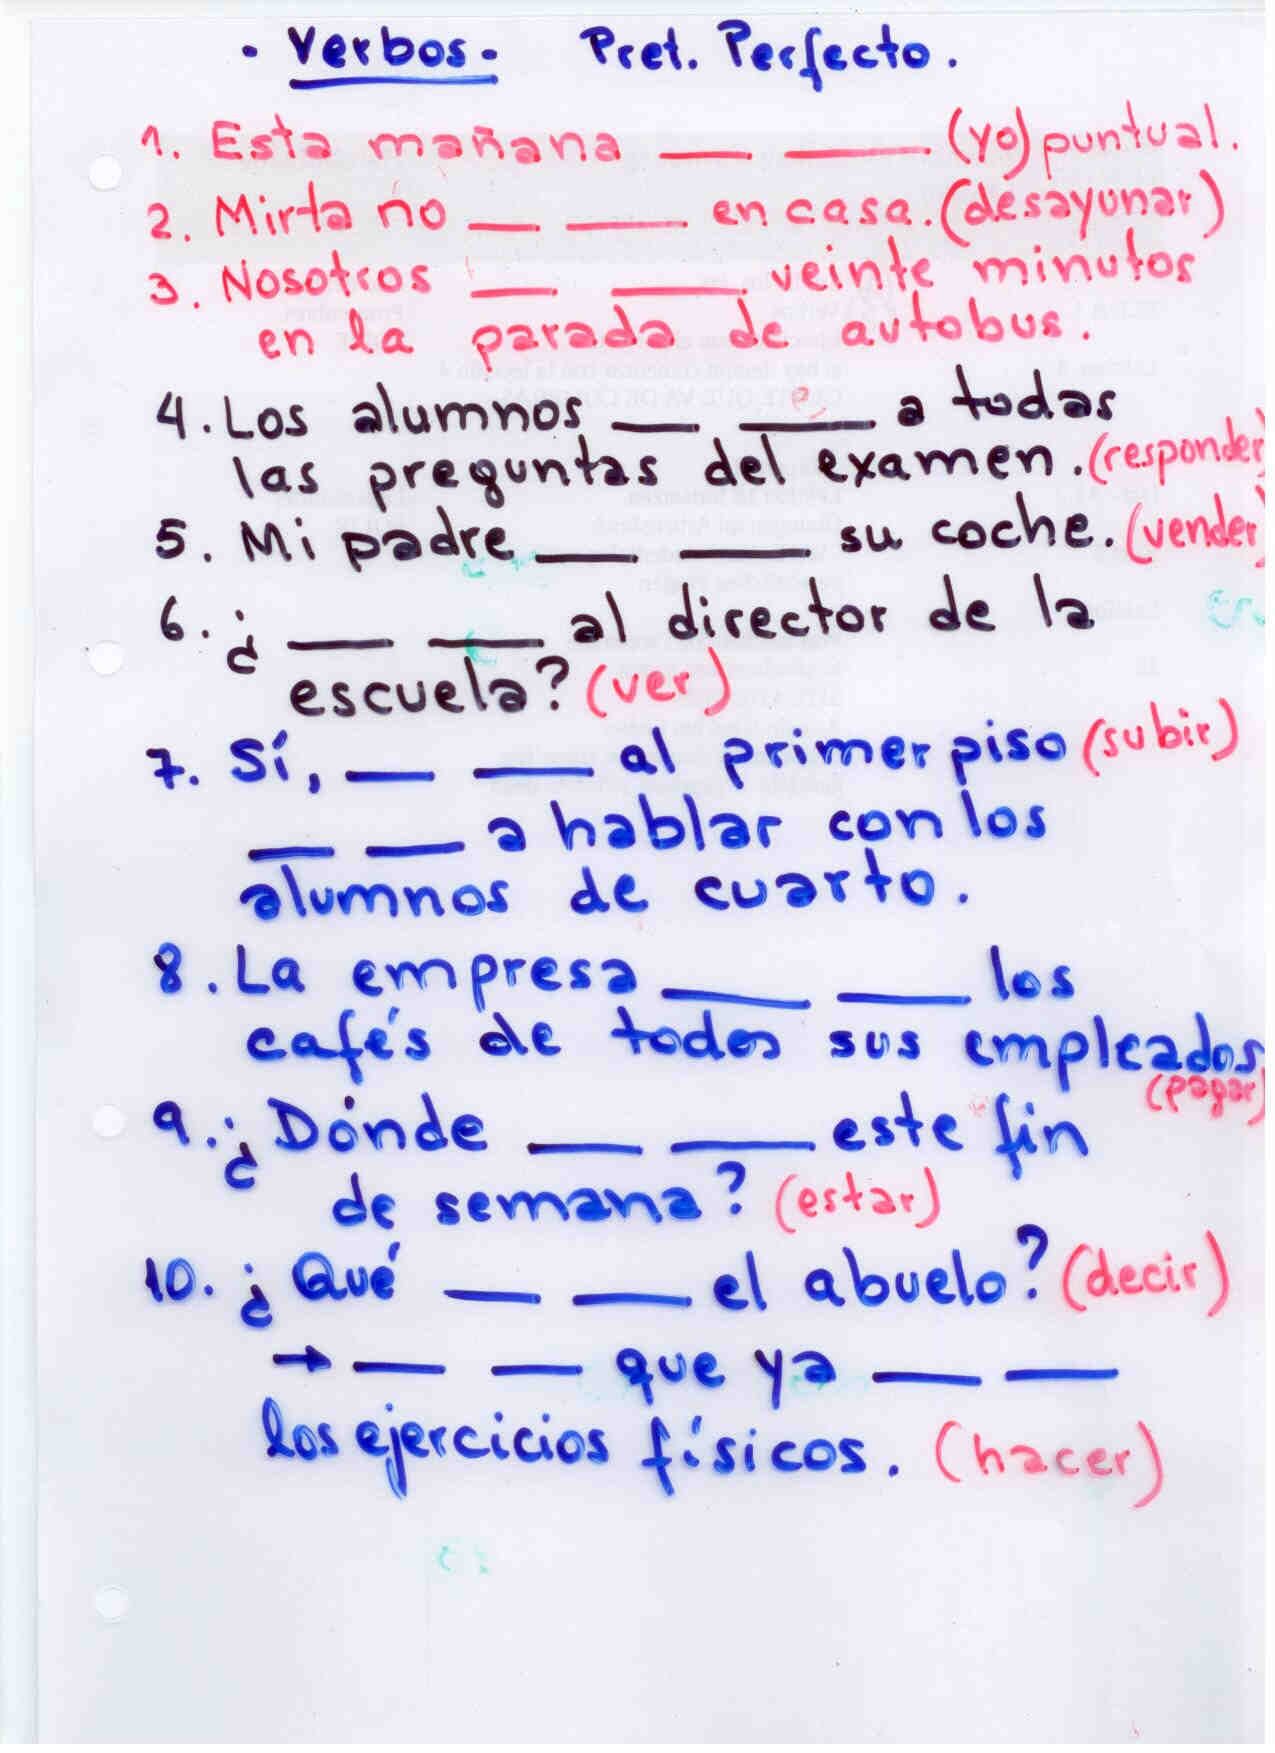 - Verbos - Pret. Perfecto.
1. Esta mañana ___ ___ (yo) puntual.
2. Mirta no ___ ___ en casa. (desayunar)
3. Nosotros ___ ___ veinte minutos
en la parada de autobus.
4. Los alumnos ___ ___ a todas
las preguntas del examen. (responder)
5. Mi padre ___ ___ su coche. (vender)
6. ¿ ___ ___ al director de la
escuela? (ver)
7. Sí, ___ ___ al primer piso (subir)
___ ___ a hablar con los
alumnos de cuarto.
8. La empresa ___ ___ los
cafés de todos sus empleados.
(pagar)
9. ¿Dónde ___ ___ este fin
de semana? (estar)
10. ¿Qué ___ ___ el abuelo? (decir)
→ ___ ___ que ya ___ ___
los ejercicios físicos. (hacer)